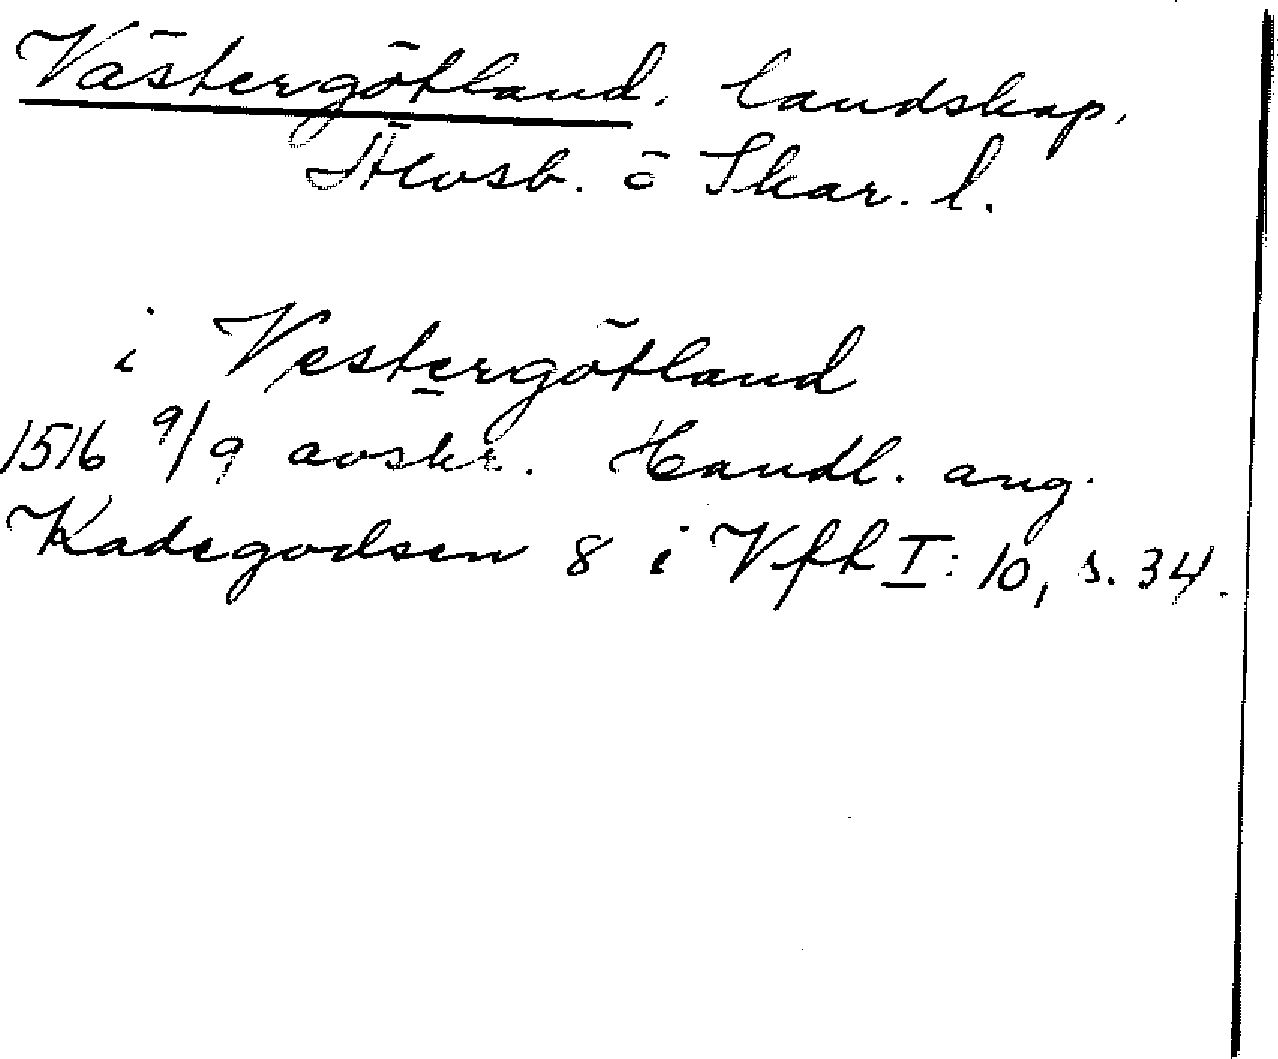 Västergötland, landskap,
Älvsb. o Skar. l.
i Vestergötland
1516 9/9 avskr. Handl. ang.
Kadegodsen 8 i Vfh I: 10, s. 34.